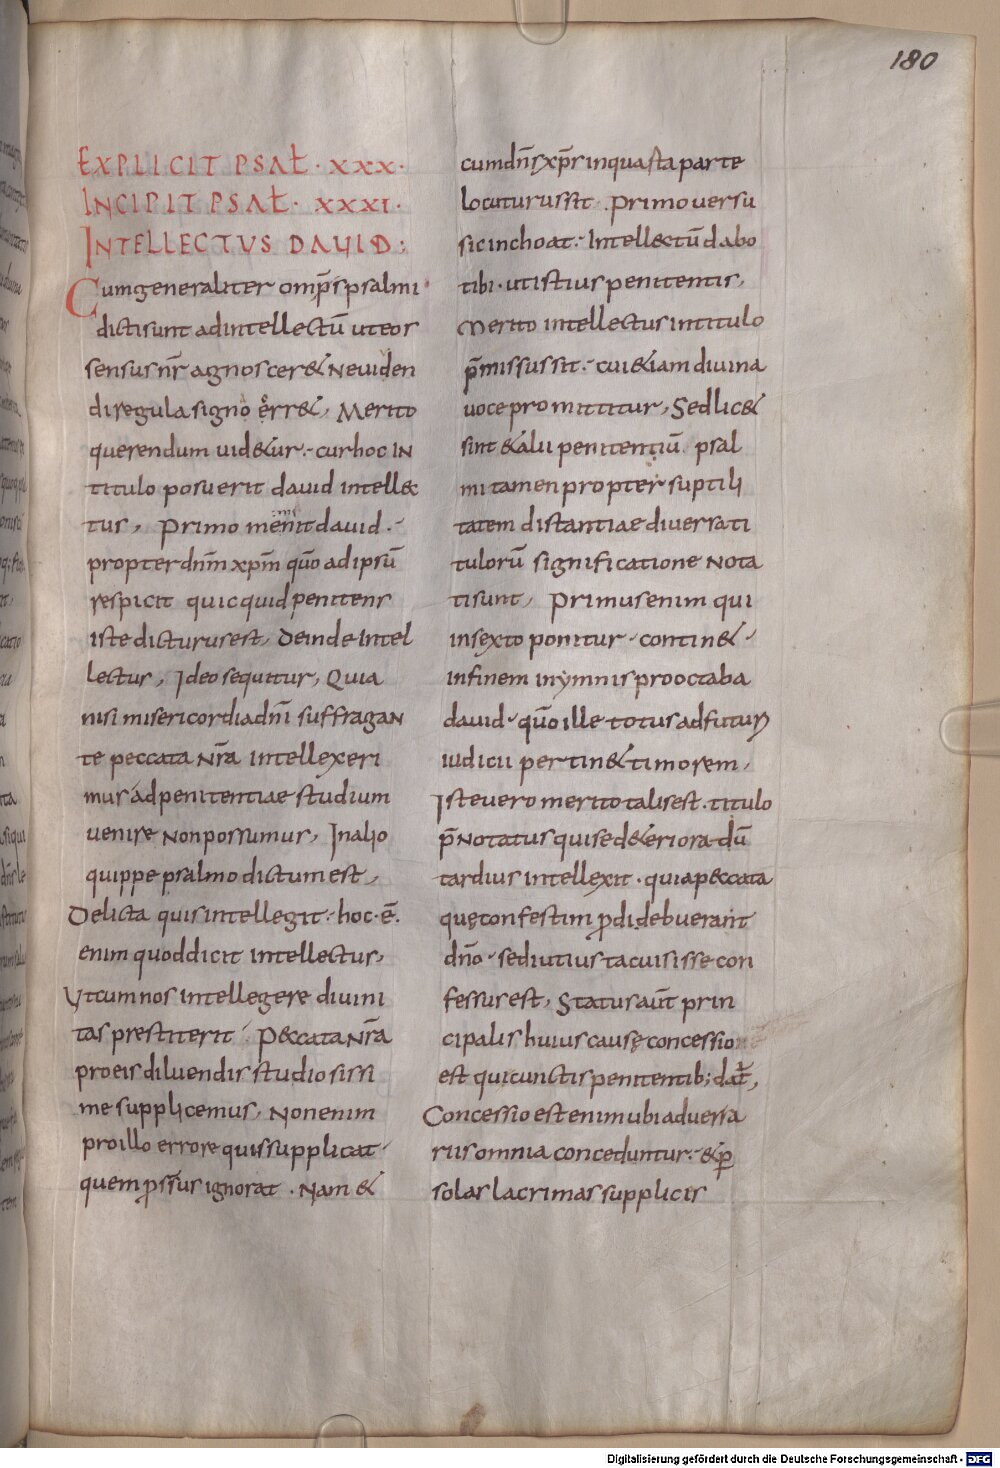 180
EXPLICIT PSAŁ · XXX ·
INCIPIT PSAŁ · XXXI ·
INTELLECTUS DAUID :
Cum generaliter omp̄s psalmi
dicti sunt ad intellectū ut eos
sensus nr̄ agnosceret Ne uiden
di regula signo erret, Merito
querendum uidetur · cur hoc IN
titulo posuerit dauid intellec
tus, Primo menit dauid ·
propter dn̄m xp̄m quō ad ipsū
respicit quicquid penitens
iste dicturus est, deinde Intel
lectus, Ideo sequitur, Quia
nisi misericordia dn̄i suffragaN
te peccata Nr̄a intellexeri
mus ad penitentiae studium
uenire Non possumus, In alio
quippe psalmo dictum est,
Delicta quis intellegit · hoc · ē ·
enim quod dicit intellectus,
Ut cum nos intellegere diuini
tas prestiterit Peccata Nr̄a
pro eis diluendis studiosissi
me supplicemus, Non enim
pro illo errore quis supplicat ·
quem prs̄us ignorat . Nam &
cum dn̄s xp̄s in quasta parte
locuturus sit . Primo uersu
sic inchoat · Intellectū dabo
tibi · ut istius penitentis,
Merito intellectus in titulo
p̄missus sit · cui & iam diuina
uoce promittitur, Sed lic&
sint & alii penitentiū psal
mi tamen propter suptili
tatem distantiae diuersa ti
tulorū significatione Nota
ti sunt, Primus enim qui
in sexto ponitur · contin& ·
in finem in ymnis pro octaba
dauid · quō ille totus ad futuri
iudicii pertin& timorem,
Iste uero merito talis est . titulo
p̄Notatus qui se deteriora dū
tardius intellexit . quia peccata
quę confestim p̱di debuerant
dn̄o · sed iutius tacuisisse con
fessus est, Status aūt prin
cipalis huius causę concessio
est qui cunctis penitentib; dat̄,
Concessio est enim ubi aduersa
riis omnia conceduntur · & p̱
solas lacrimas supplicis
Digitalisierung gefördert durch die Deutsche Forschungsgemeinschaft - DFG